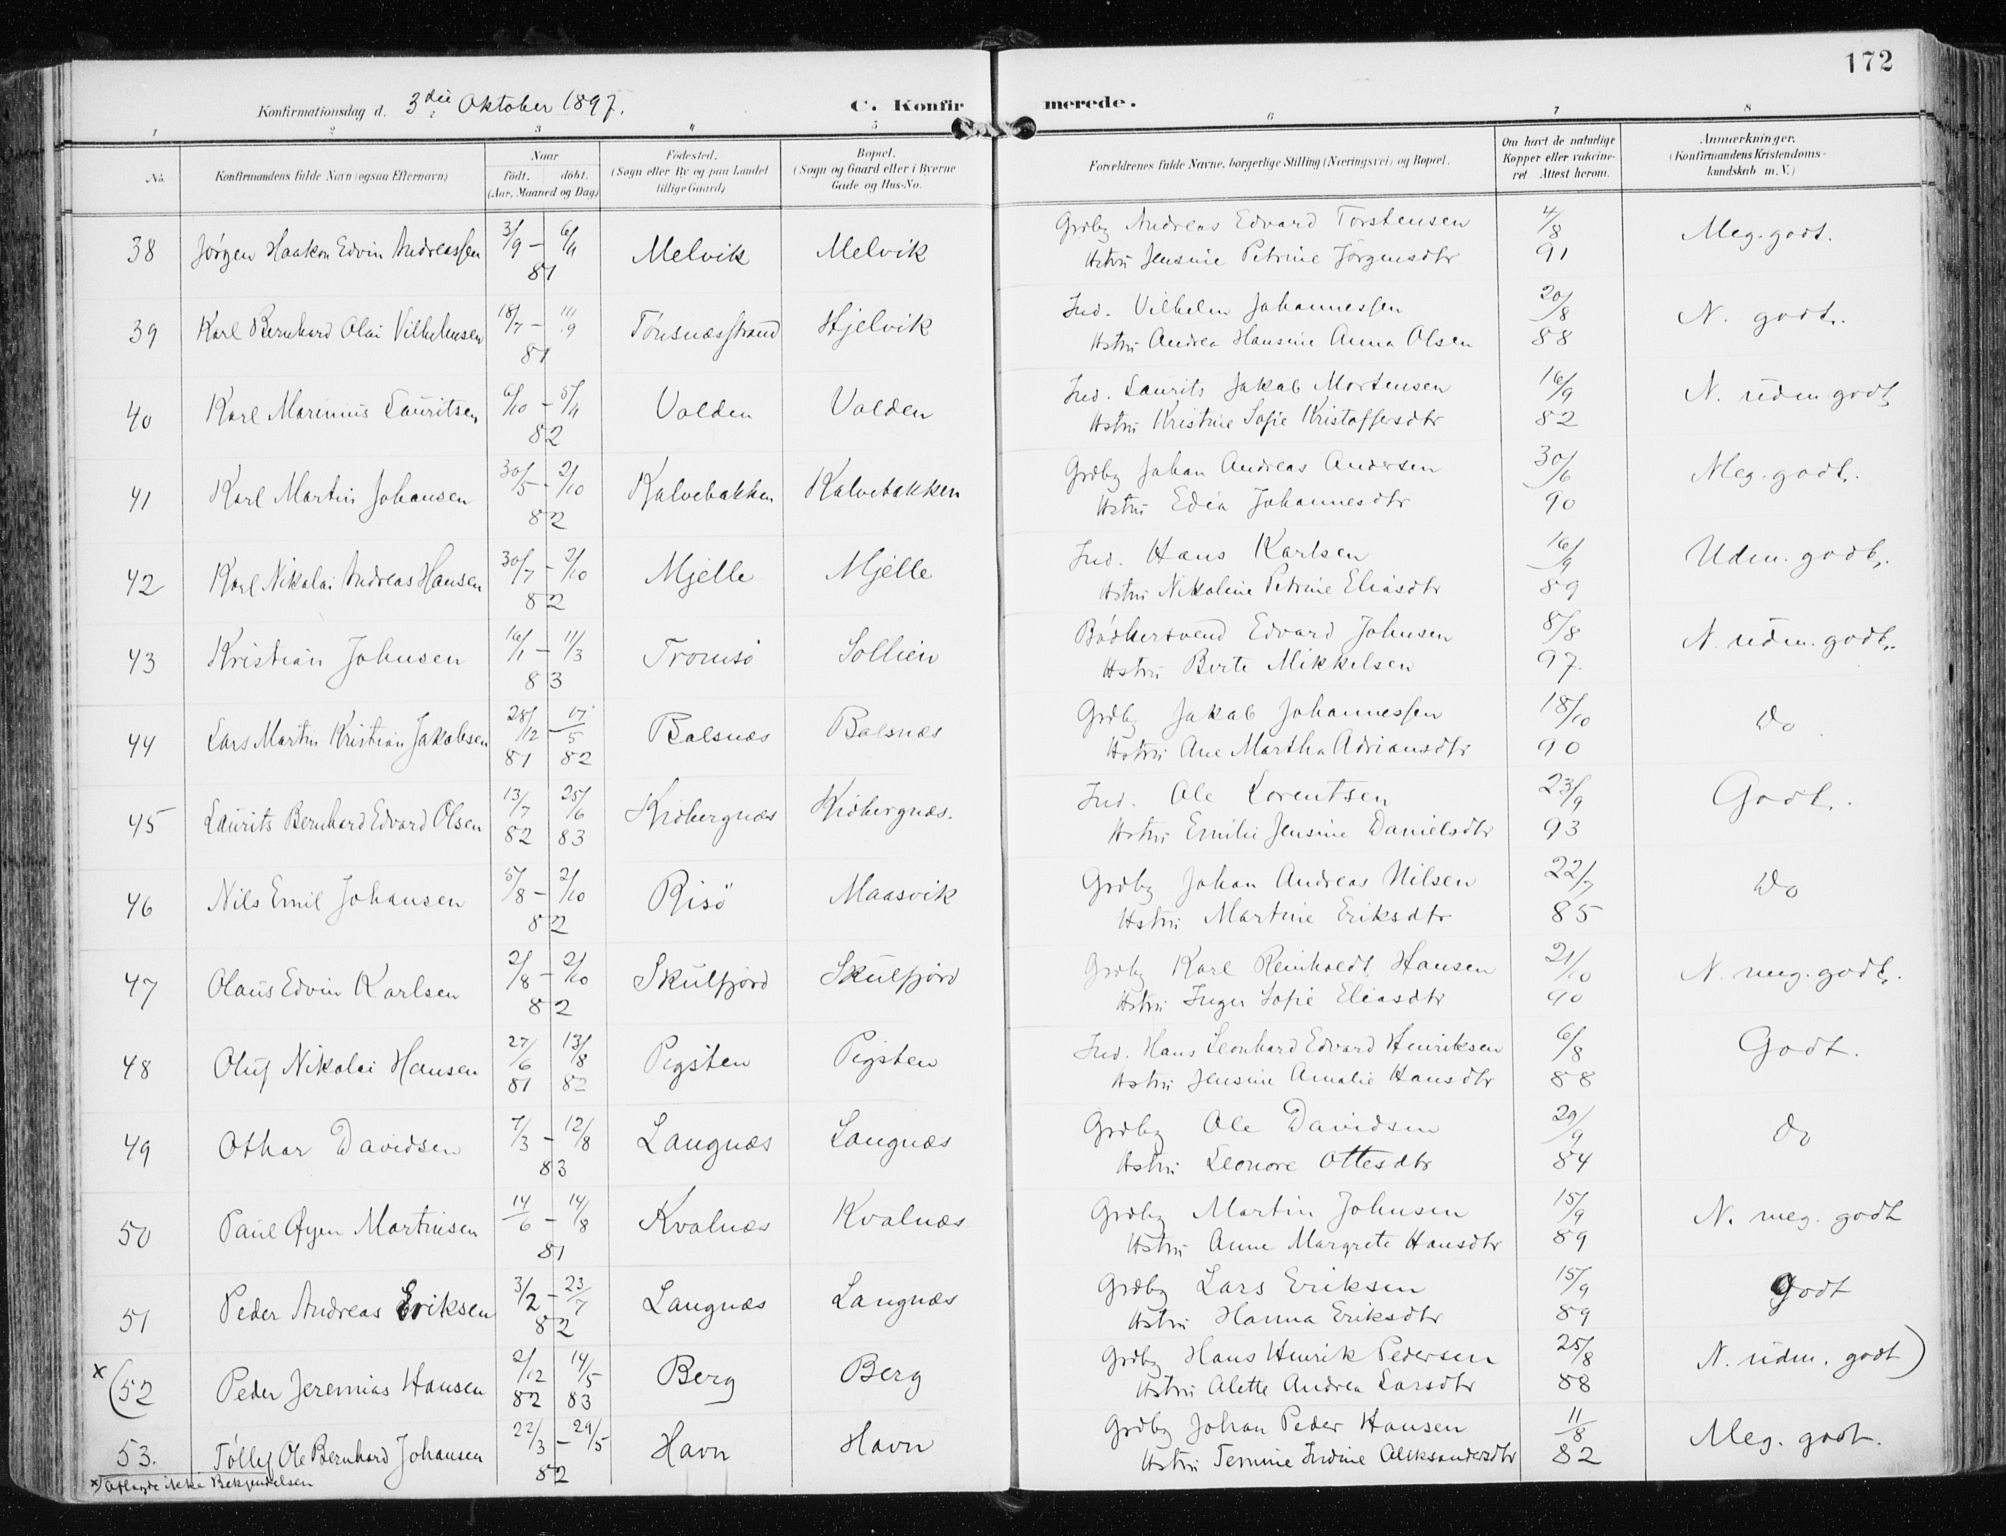 172
Konfirmationsdag d. 3die Oktober 1897. C. Konfirmerede.
1 2 3 4 5 6 7 8
No. Konfirmandens fulde Navn (ogsaa Efternavn) Naar født. døbt. (Aar, Maaned og Dag) Fødested. (Sogn eller By og paa Landet tillige Gaard) Bopæl. (Sogn og Gaard eller i Byerne Gade og Hus-No. Forældrenes fulde Navne, borgerlige Stilling (Næringsvei) og Bopæl. Om havt de naturlige Kopper eller vaccineret Attest herom. Anmærkninger. (Konfirmandens Kristendomskundskab m. V.)
38 Jørgen Haakon Edvin Andreassen 3/9 – 6/11 81 Melvik Melvik Grdbg Andreas Edvard Torstensen 4/8 Meg. godt.
Hstru Jensine Petrine Jørgensdtr 91
39 Karl Bernhard Olai Vilhelmsen 18/7 – 11/9 81 Tønsnæsstrand Hjelvik Ind. Vilhelm Johannessen 20/8 N. godt.
Hstru Andrea Hansine Anna Olsen 88
40 Karl Marinius Lauritsen 6/10 – 5/11 82 Valden Valden Ind. Laurits Jakab Mortensen 16/9 N. udm godt
Hstru Kristine Sofie Kristoffersdtr 82
41 Karl Martin Johansen 30/5 – 2/10 82 Kalvebakken Kalvebakken Grdbg Johan Andreas Andersen 30/6 Meg. godt.
Hstru Edia Johannesdtr 90
42 Karl Nikolai Andreas Hansen 30/7 – 2/10 82 Mjelle Mjelle Ind. Hans Karlsen 16/9 Udm. godt.
Hstru Nikoline Petrine Eliasdtr 89
43 Kristian Johnsen 16/1 – 11/3 83 Tromsö Sollien Bödkersvend Edvard Johnsen 8/8 N. udm. godt.
Hstru Berte Mikkelsen 97.
44 Lars Martin Kristian Jakobsen 28/12 81 – 17/5 82 Balsnæs Balsnæs Grdbg Jakab Johannessen 18/10 Do
Hstru Ane Martha Adriansdtr 90
45 Laurits Bernhard Edvard Olsen 13/7 82 25/6 83 Kidbergnæs Kidbergnæs. Ind. Ole Lorentsen 23/9 Godt.
Hstru Emilie Jensine Danielsdtr 93
46 Nils Emil Johansen 5/8 – 2/10 82 Risö Maasvik Grdbg Johan Andreas Nilsen 22/7 Do
Hstru Martine Eriksdtr 85
47 Olaus Edvin Karlsen 2/8 – 2/10 82 Skulfjord Skulfjord Grdbg Karl Reinholdt Hansen 21/10 N. meg. godt.
Hstru Inger Sofie Eliasdtr 90
48 Oluf Nikolai Hansen 27/6 81 13/8 82 Pigsten Pigsten Ind. Hans Leonhard Edvard Henriksen 6/8 Godt.
Hstru Jensine Amalie Hansdtr 88
49 Othar Davidsen 7/3 – 12/8 83 Langnæs Langnæs Grdbg Ole Davidsen 29/9 do
Hstru Leonore Ottesdtr 84
50 Paul Øyen Martinsen 14/6 – 14/8 81 Kvalnæs Kvalnæs Grdbg Martin Johnsen 15/9 N. meg. godt
Hstru Anne Margrete Hansdtr 89
51 Peder Andreas Eriksen 3/2 – 23/7 82 Langnæs Langnæs Grdbg Lars Eriksen 15/9 Godt
Hstru Hanna Eriksdtr 89
x (52 Peder Jeremias Hansen 2/12 82 14/5 83 Berg Berg Grdbg Hans Henrik Pedersen 25/8 N. udm. godt)
Hstru Alette Andrea Larsdtr 88
53. Tølløf Ole Bernhard Johansen 22/3 – 29/5 82 Havn Havn Grdbg Johan Peder Hansen 11/8 Meg. godt.
Hstru Indine Aleksandersdtr 82
x) Aflagde ikke Bekjendelsen